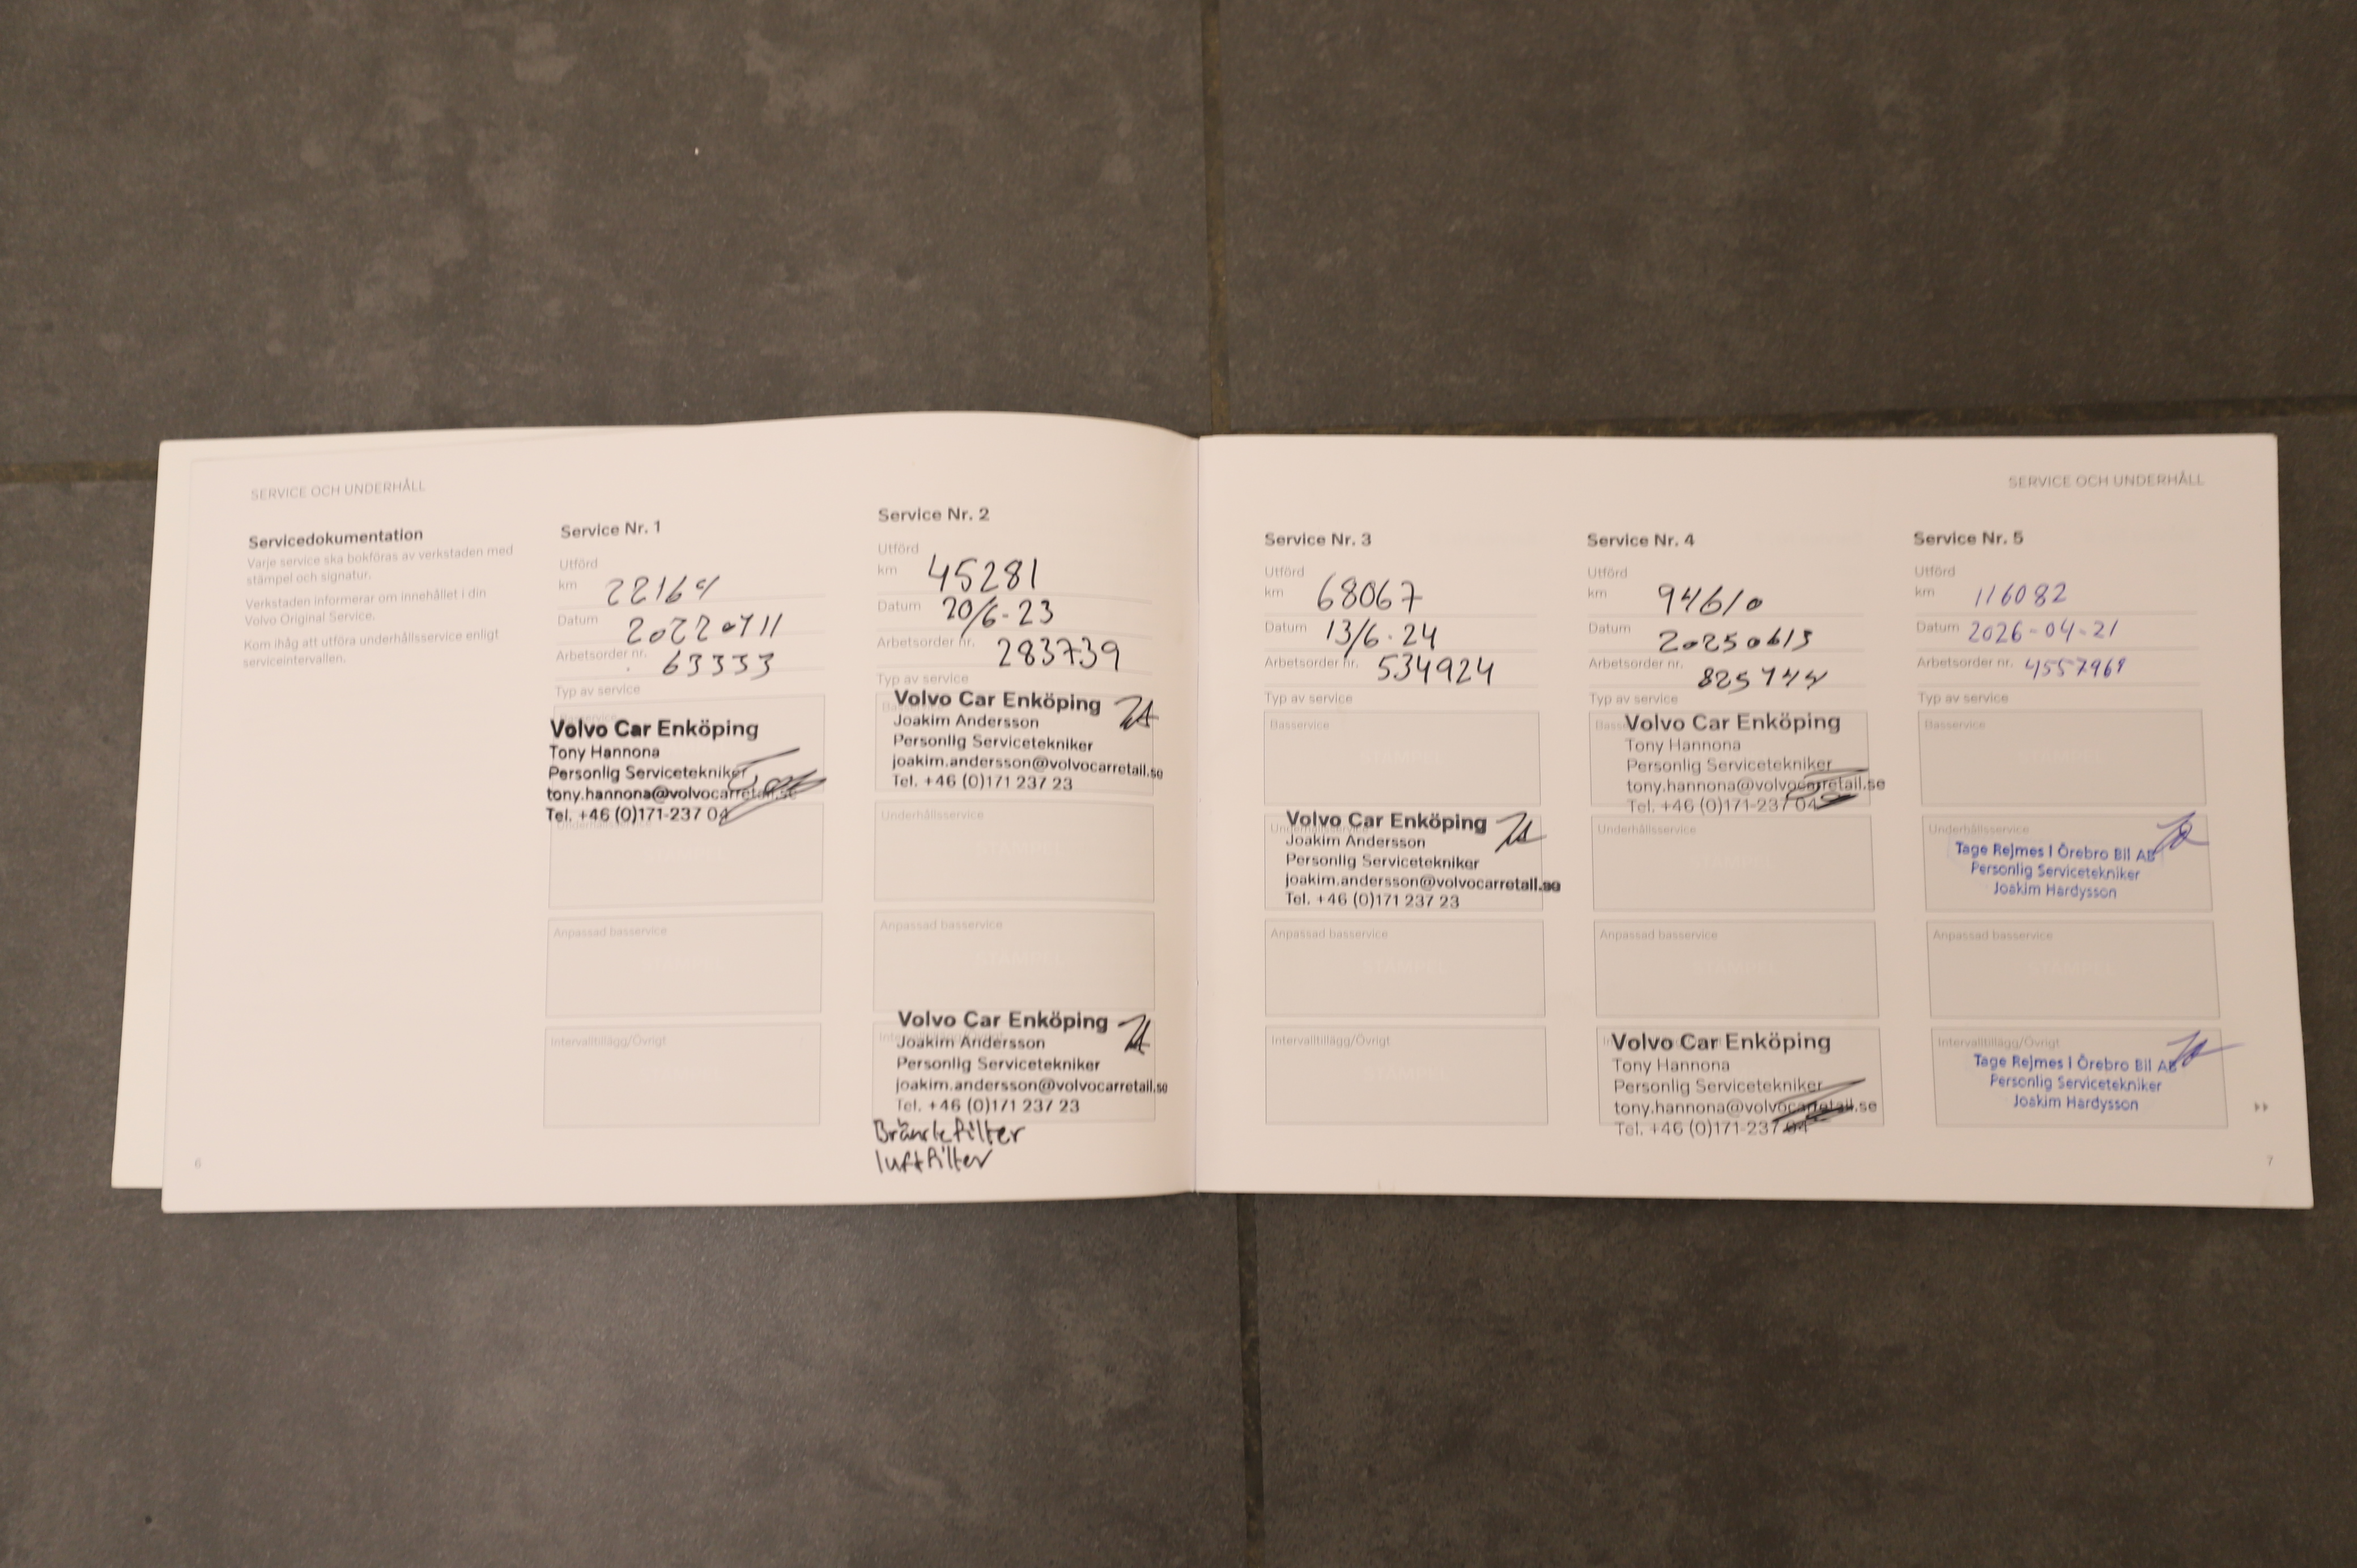 SERVICE OCH UNDERHÅLL
Servicedokumentation
Varje service ska bokföras av verkstaden med
stämpel och signatur.
Verkstaden informerar om innehållet i din
Volvo Original Service.
Kom ihåg att utföra underhållsservice enligt
serviceintervallen.
6
Service Nr. 1
Utförd
km 22164
Datum 20220711
Arbetsorder nr. 63333
Typ av service
Volvo Car Enköping
Tony Hannona
Personlig Servicetekniker
tony.hannona@volvocarretail.se
Tel. +46 (0)171-237 04
Underhållsservice
STÄMPEL
Anpassad basservice
STÄMPEL
Intervalltillägg/Övrigt
Service Nr. 2
Utförd
km 45281
Datum 20/6-23
Arbetsorder nr. 283739
Typ av service
Volvo Car Enköping
Joakim Andersson
Personlig Servicetekniker
joakim.andersson@volvocarretail.se
Tel. +46 (0)171 237 23
Underhållsservice
STÄMPEL
Anpassad basservice
STÄMPEL
Volvo Car Enköping
Joakim Andersson
Personlig Servicetekniker
joakim.andersson@volvocarretail.se
Tel. +46 (0)171 237 23
Bränslefilter
luftfilter
SERVICE OCH UNDERHÅLL
Service Nr. 3
Utförd
km 68067
Datum 13/6-24
Arbetsorder nr. 534924
Typ av service
Basservice
STÄMPEL
Underhållsservice
Volvo Car Enköping
Joakim Andersson
Personlig Servicetekniker
joakim.andersson@volvocarretail.se
Tel. +46 (0)171 237 23
Anpassad basservice
STÄMPEL
Intervalltillägg/Övrigt
Service Nr. 4
Utförd
km 94610
Datum 20250613
Arbetsorder nr.
Typ av service
Volvo Car Enköping
Tony Hannona
Personlig Servicetekniker
tony.hannona@volvocarretail.se
Tel. +46 (0)171-237 04
Underhållsservice
STÄMPEL
Anpassad basservice
STÄMPEL
Volvo Car Enköping
Tony Hannona
Personlig Servicetekniker
tony.hannona@volvocarretail.se
Tel. +46 (0)171-237 04
Service Nr. 5
Utförd
km 116082
Datum 2026-04-21
Arbetsorder nr.
Typ av service
Basservice
STÄMPEL
Underhållsservice
Tage Rejmes I Örebro Bil AB
Personlig Servicetekniker
Joakim Hardysson
Anpassad basservice
STÄMPEL
Intervalltillägg/Övrigt
Tage Rejmes I Örebro Bil AB
Personlig Servicetekniker
Joakim Hardysson
7